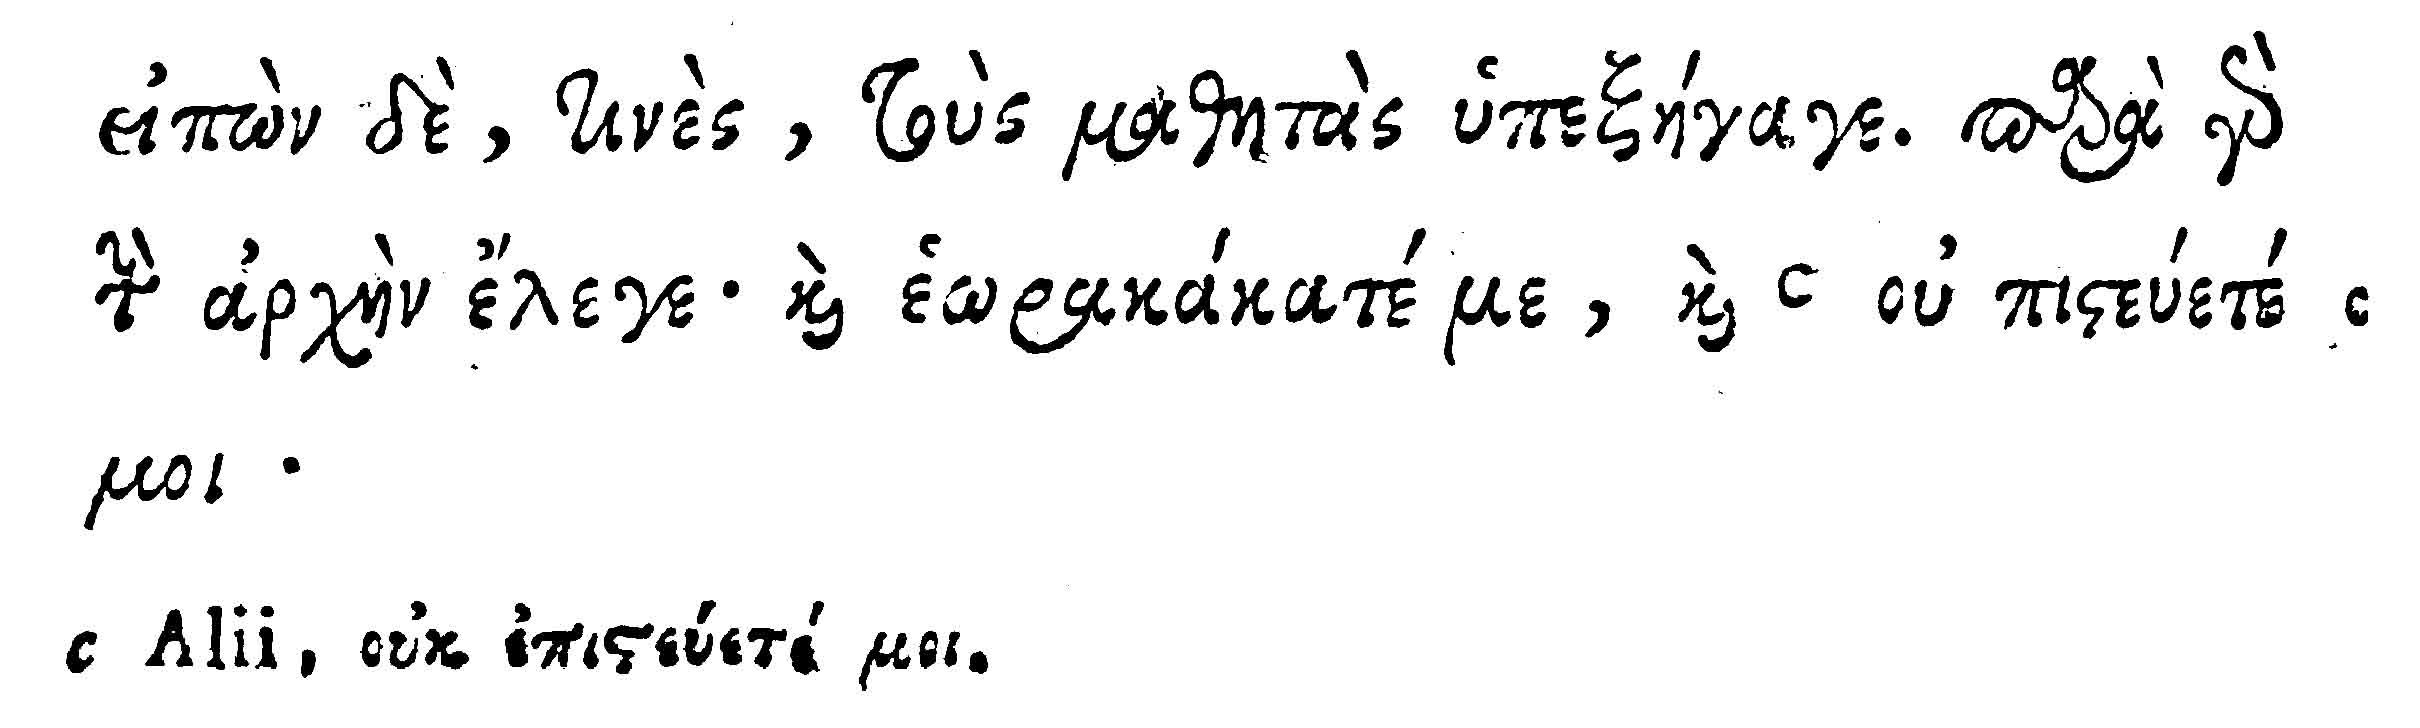 εἰπὼν δὲ, τινὲς, τοὺς μαθητὰς ὑπεξήγαγε. παρὰ γὸ
τὴν ἀρχὴν ἔλεγε· ϗ̀ ἑωρακάκατέ με, ϗ̀ c οὐ πιϛεύετέ c
μοι·
c Alii, οὐκ ἐπιϛεύετέ μοι.